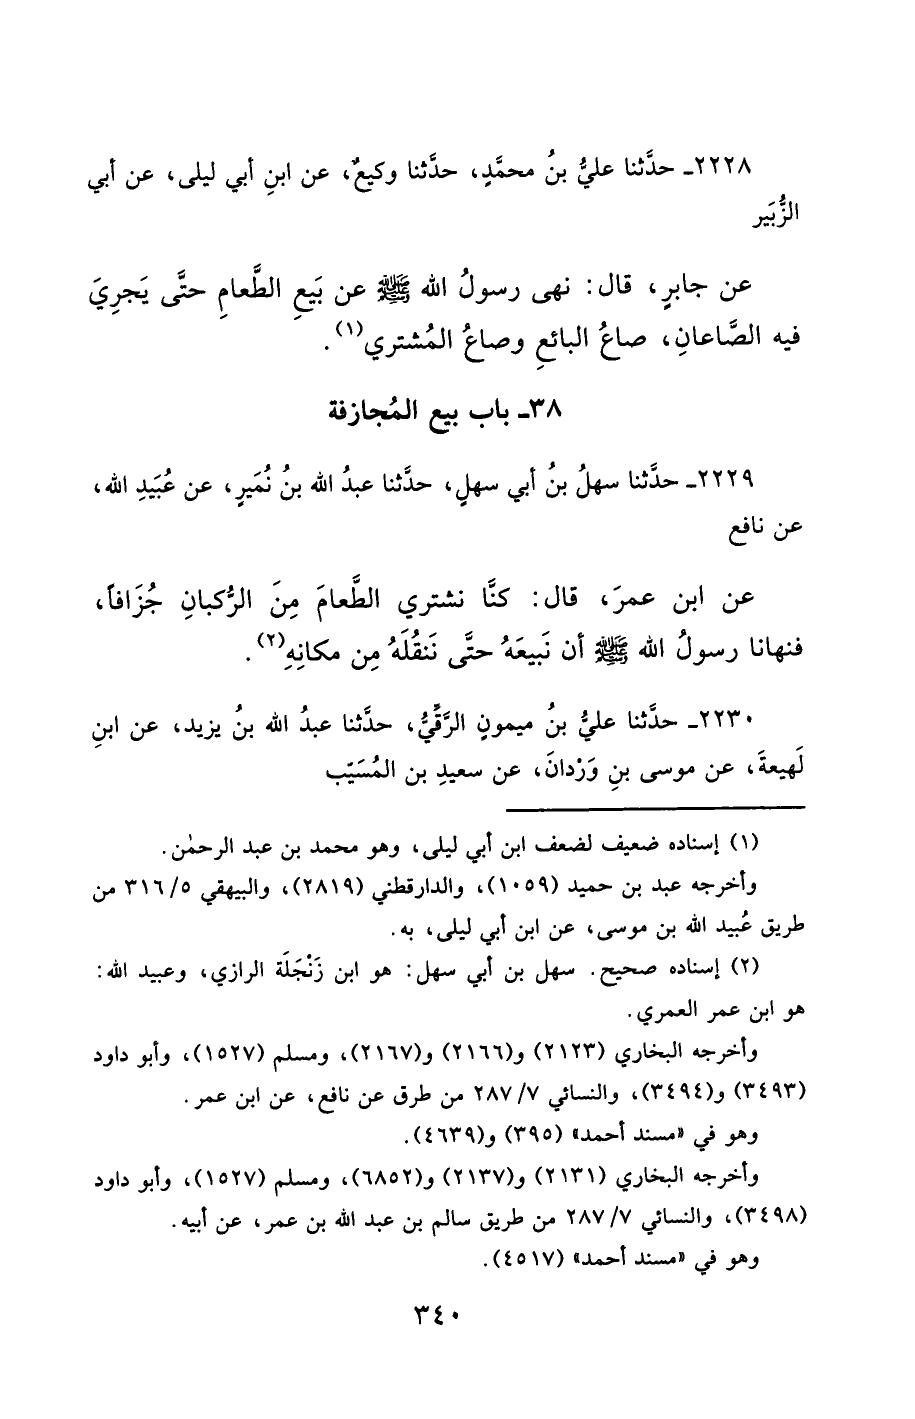 ٢٢٢٨ـ حدَّثنا عليُّ بنُ محمَّدٍ، حدَّثنا وكيعٌ، عن ابنِ أبي ليلى، عن أبي
الزُّبَير
عن جابرٍ، قال: نهى رسولُ الله ﷺ عن بَيعِ الطَّعامِ حتَّى يَجرِيَ
فيه الصَّاعانِ، صاعُ البائعِ وصاعُ المُشتري(١).
٣٨ـ باب بيع المُجازفة
٢٢٢٩ـ حدَّثنا سهلُ بنُ أبي سهلٍ، حدَّثنا عبدُ الله بنُ نُمَيرٍ، عن عُبَيدِ الله،
عن نافع
عن ابن عمرَ، قال: كنَّا نشتري الطَّعامَ مِنَ الرُّكبانِ جُزَافاً،
فنهانا رسولُ الله ﷺ أن نَبيعَهُ حتَّى نَنقُلَهُ مِن مكانِهِ(٢).
٢٢٣٠ـ حدَّثنا عليُّ بنُ ميمونٍ الرَّقِّيُّ، حدَّثنا عبدُ الله بنُ يزيد، عن ابنِ
لَهيعةَ، عن موسى بنِ وَرْدانَ، عن سعيدِ بن المُسَيّب
(١) إسناده ضعيف لضعف ابن أبي ليلى، وهو محمد بن عبد الرحمٰن.
وأخرجه عبد بن حميد (١٠٥٩)، والدارقطني (٢٨١٩)، والبيهقي ٣١٦/٥ من
طريق عُبيد الله بن موسى، عن ابن أبي ليلى، به.
(٢) إسناده صحيح. سهل بن أبي سهل: هو ابن زَنْجَلَة الرازي، وعبيد الله:
هو ابن عمر العمري.
وأخرجه البخاري (٢١٢٣) و(٢١٦٦) و(٢١٦٧)، ومسلم (١٥٢٧)، وأبو داود
(٣٤٩٣) و(٣٤٩٤)، والنسائي ٢٨٧/٧ من طرق عن نافع، عن ابن عمر.
وهو في «مسند أحمد» (٣٩٥) و(٤٦٣٩).
وأخرجه البخاري (٢١٣١) و(٢١٣٧) و(٦٨٥٢)، ومسلم (١٥٢٧)، وأبو داود
(٣٤٩٨)، والنسائي ٢٨٧/٧ من طريق سالم بن عبد الله بن عمر، عن أبيه.
وهو في «مسند أحمد» (٤٥١٧).
٣٤٠